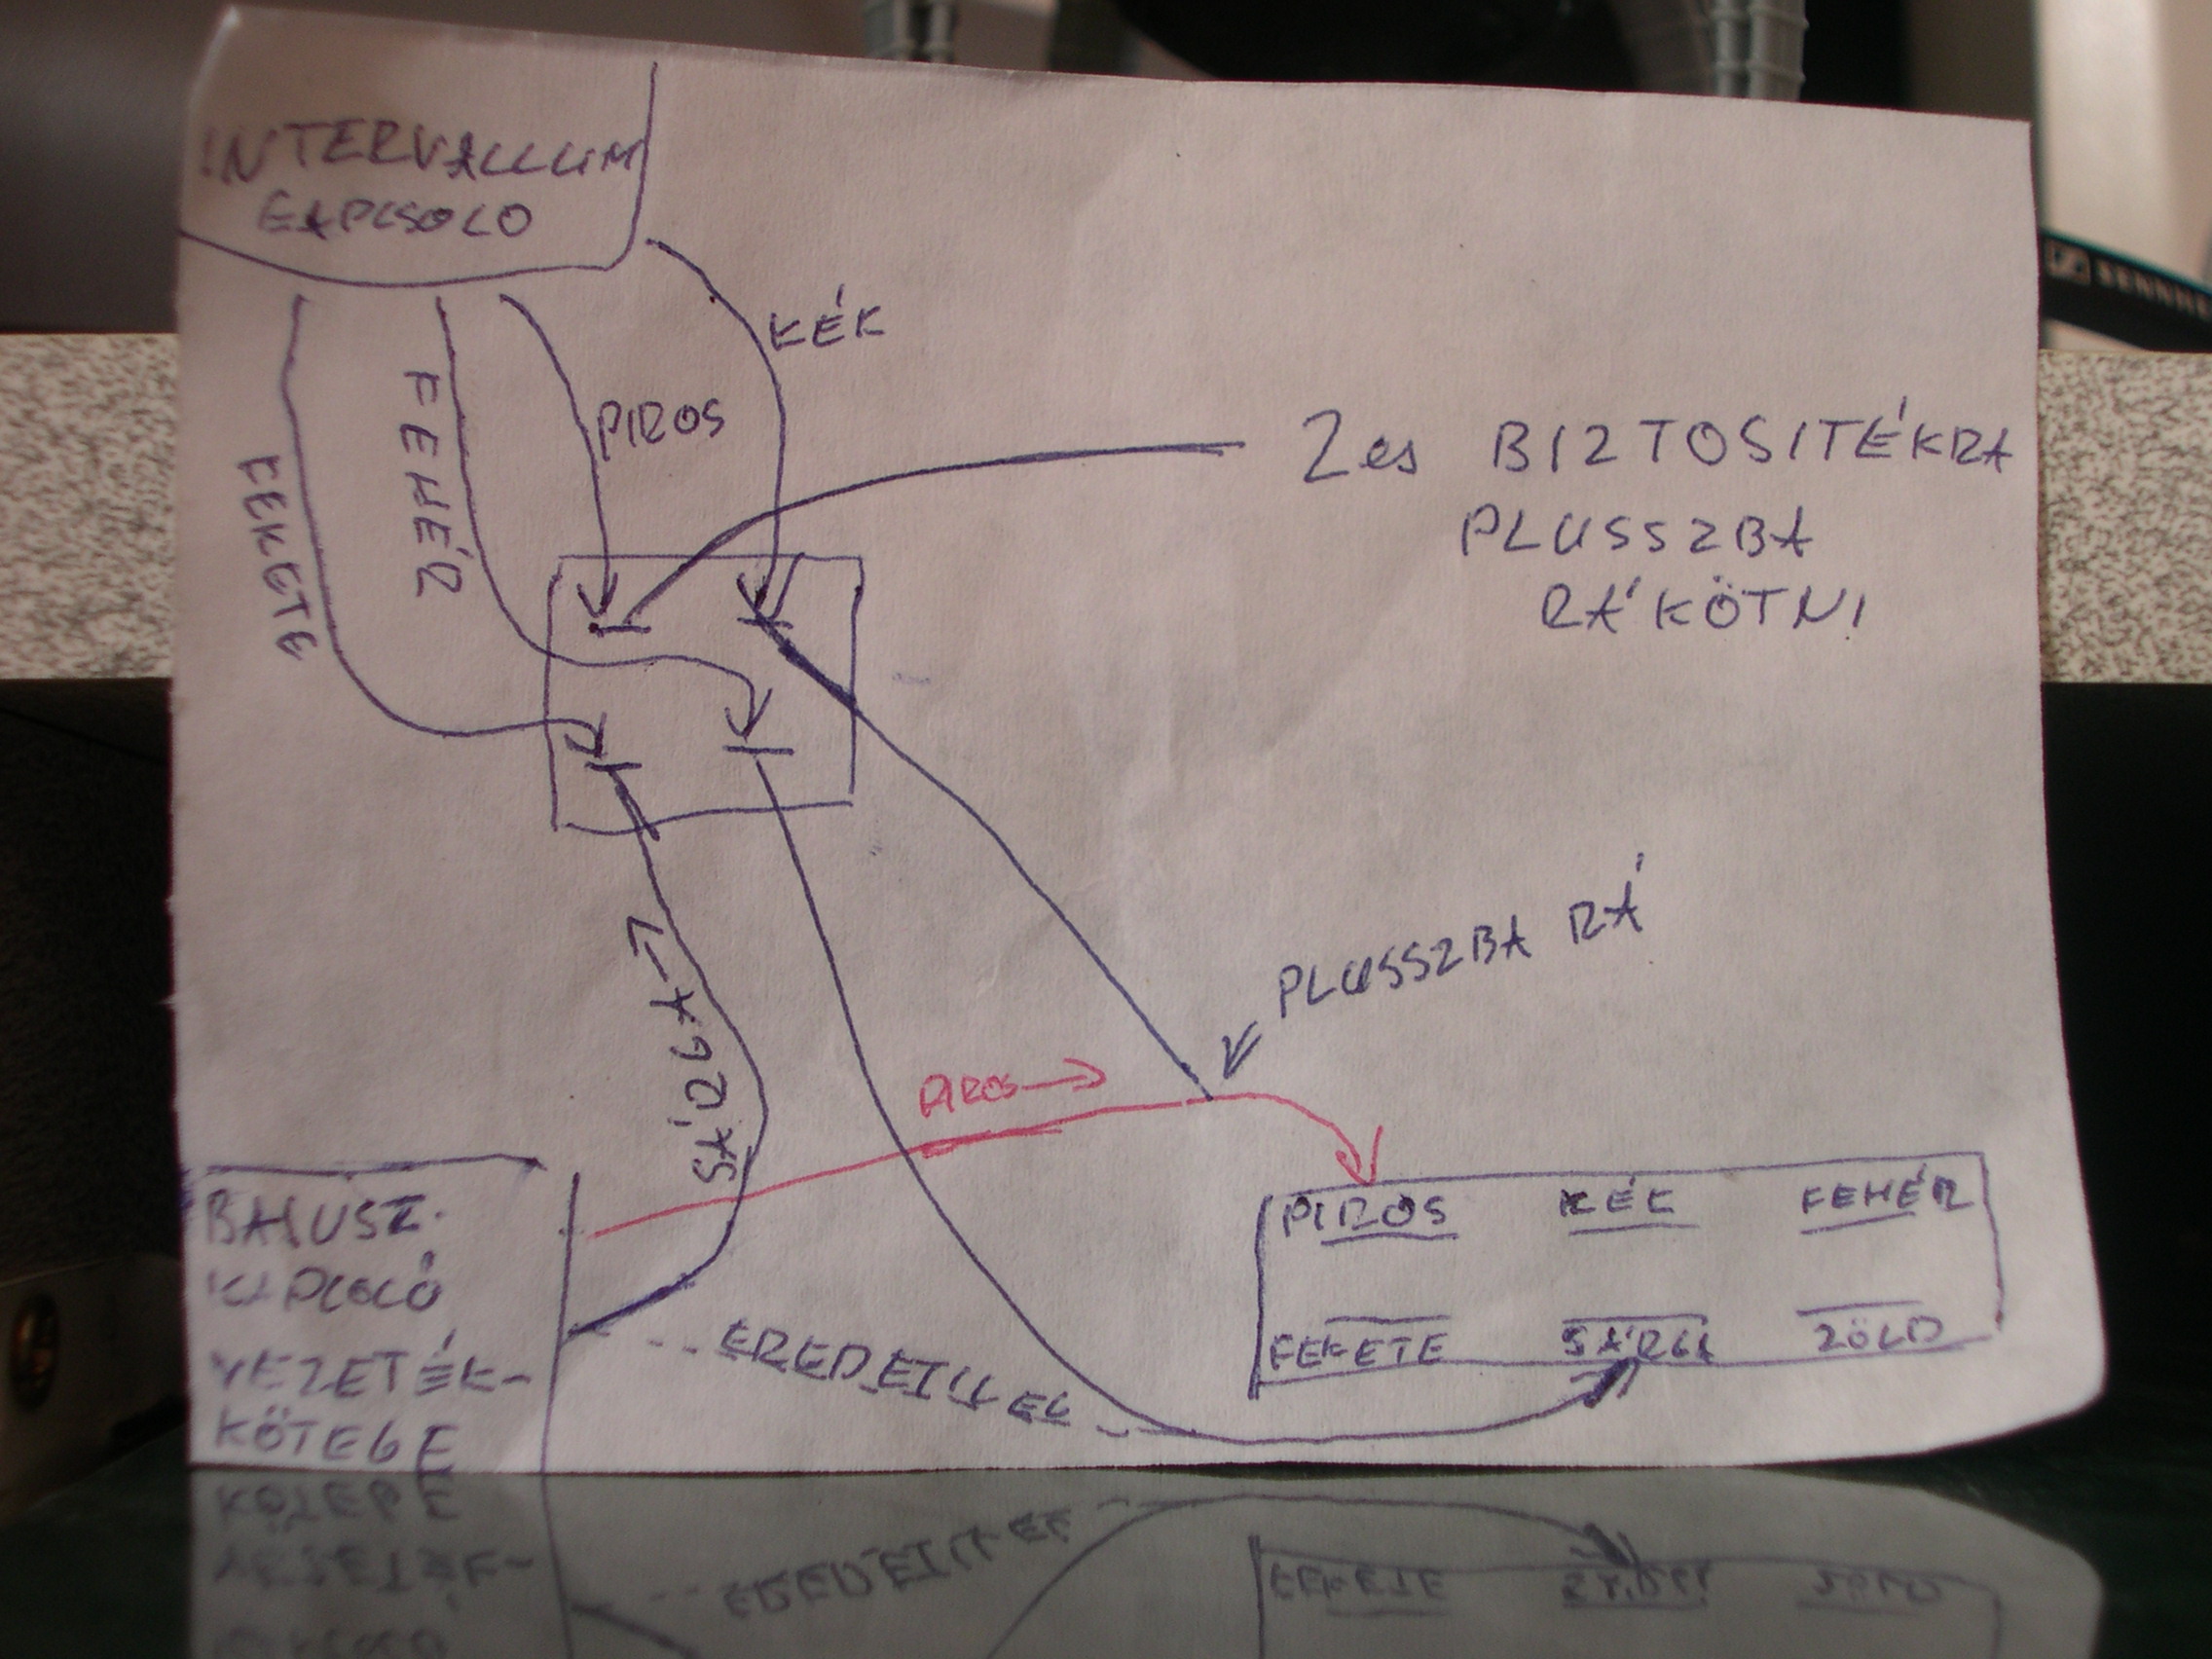 INTERVALLUM
KAPCSOLO
KÉK
PIROS
FEHÉR
FEKETE
2es BIZTOSITÉKRA
PLUSSZBA
RÁKÖTNI
SENNHE
PLUSSZBA RÁ
SÁRGA →
PIROS →
BAJUSZ.
KAPCSOLÓ
VEZETÉK-
KÖTEGE
EREDETILEG
PIROS KÉK FEHÉR
FEKETE SÁRGA ZÖLD